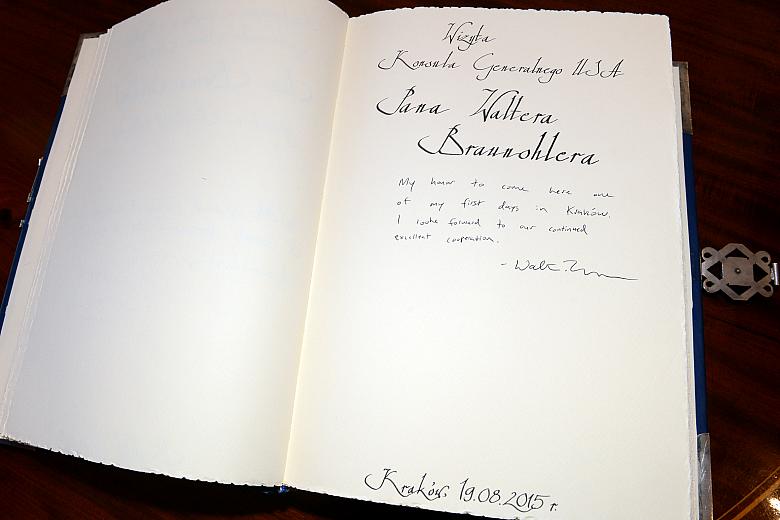 Wizyta
Konsula Generalnego USA
Pana Waltera
Braunohlera
My honor to come here one
of my first days in Kraków.
I looke forward to our continued
excellent cooperation.
- Walt
Kraków, 19.08.2015 r.